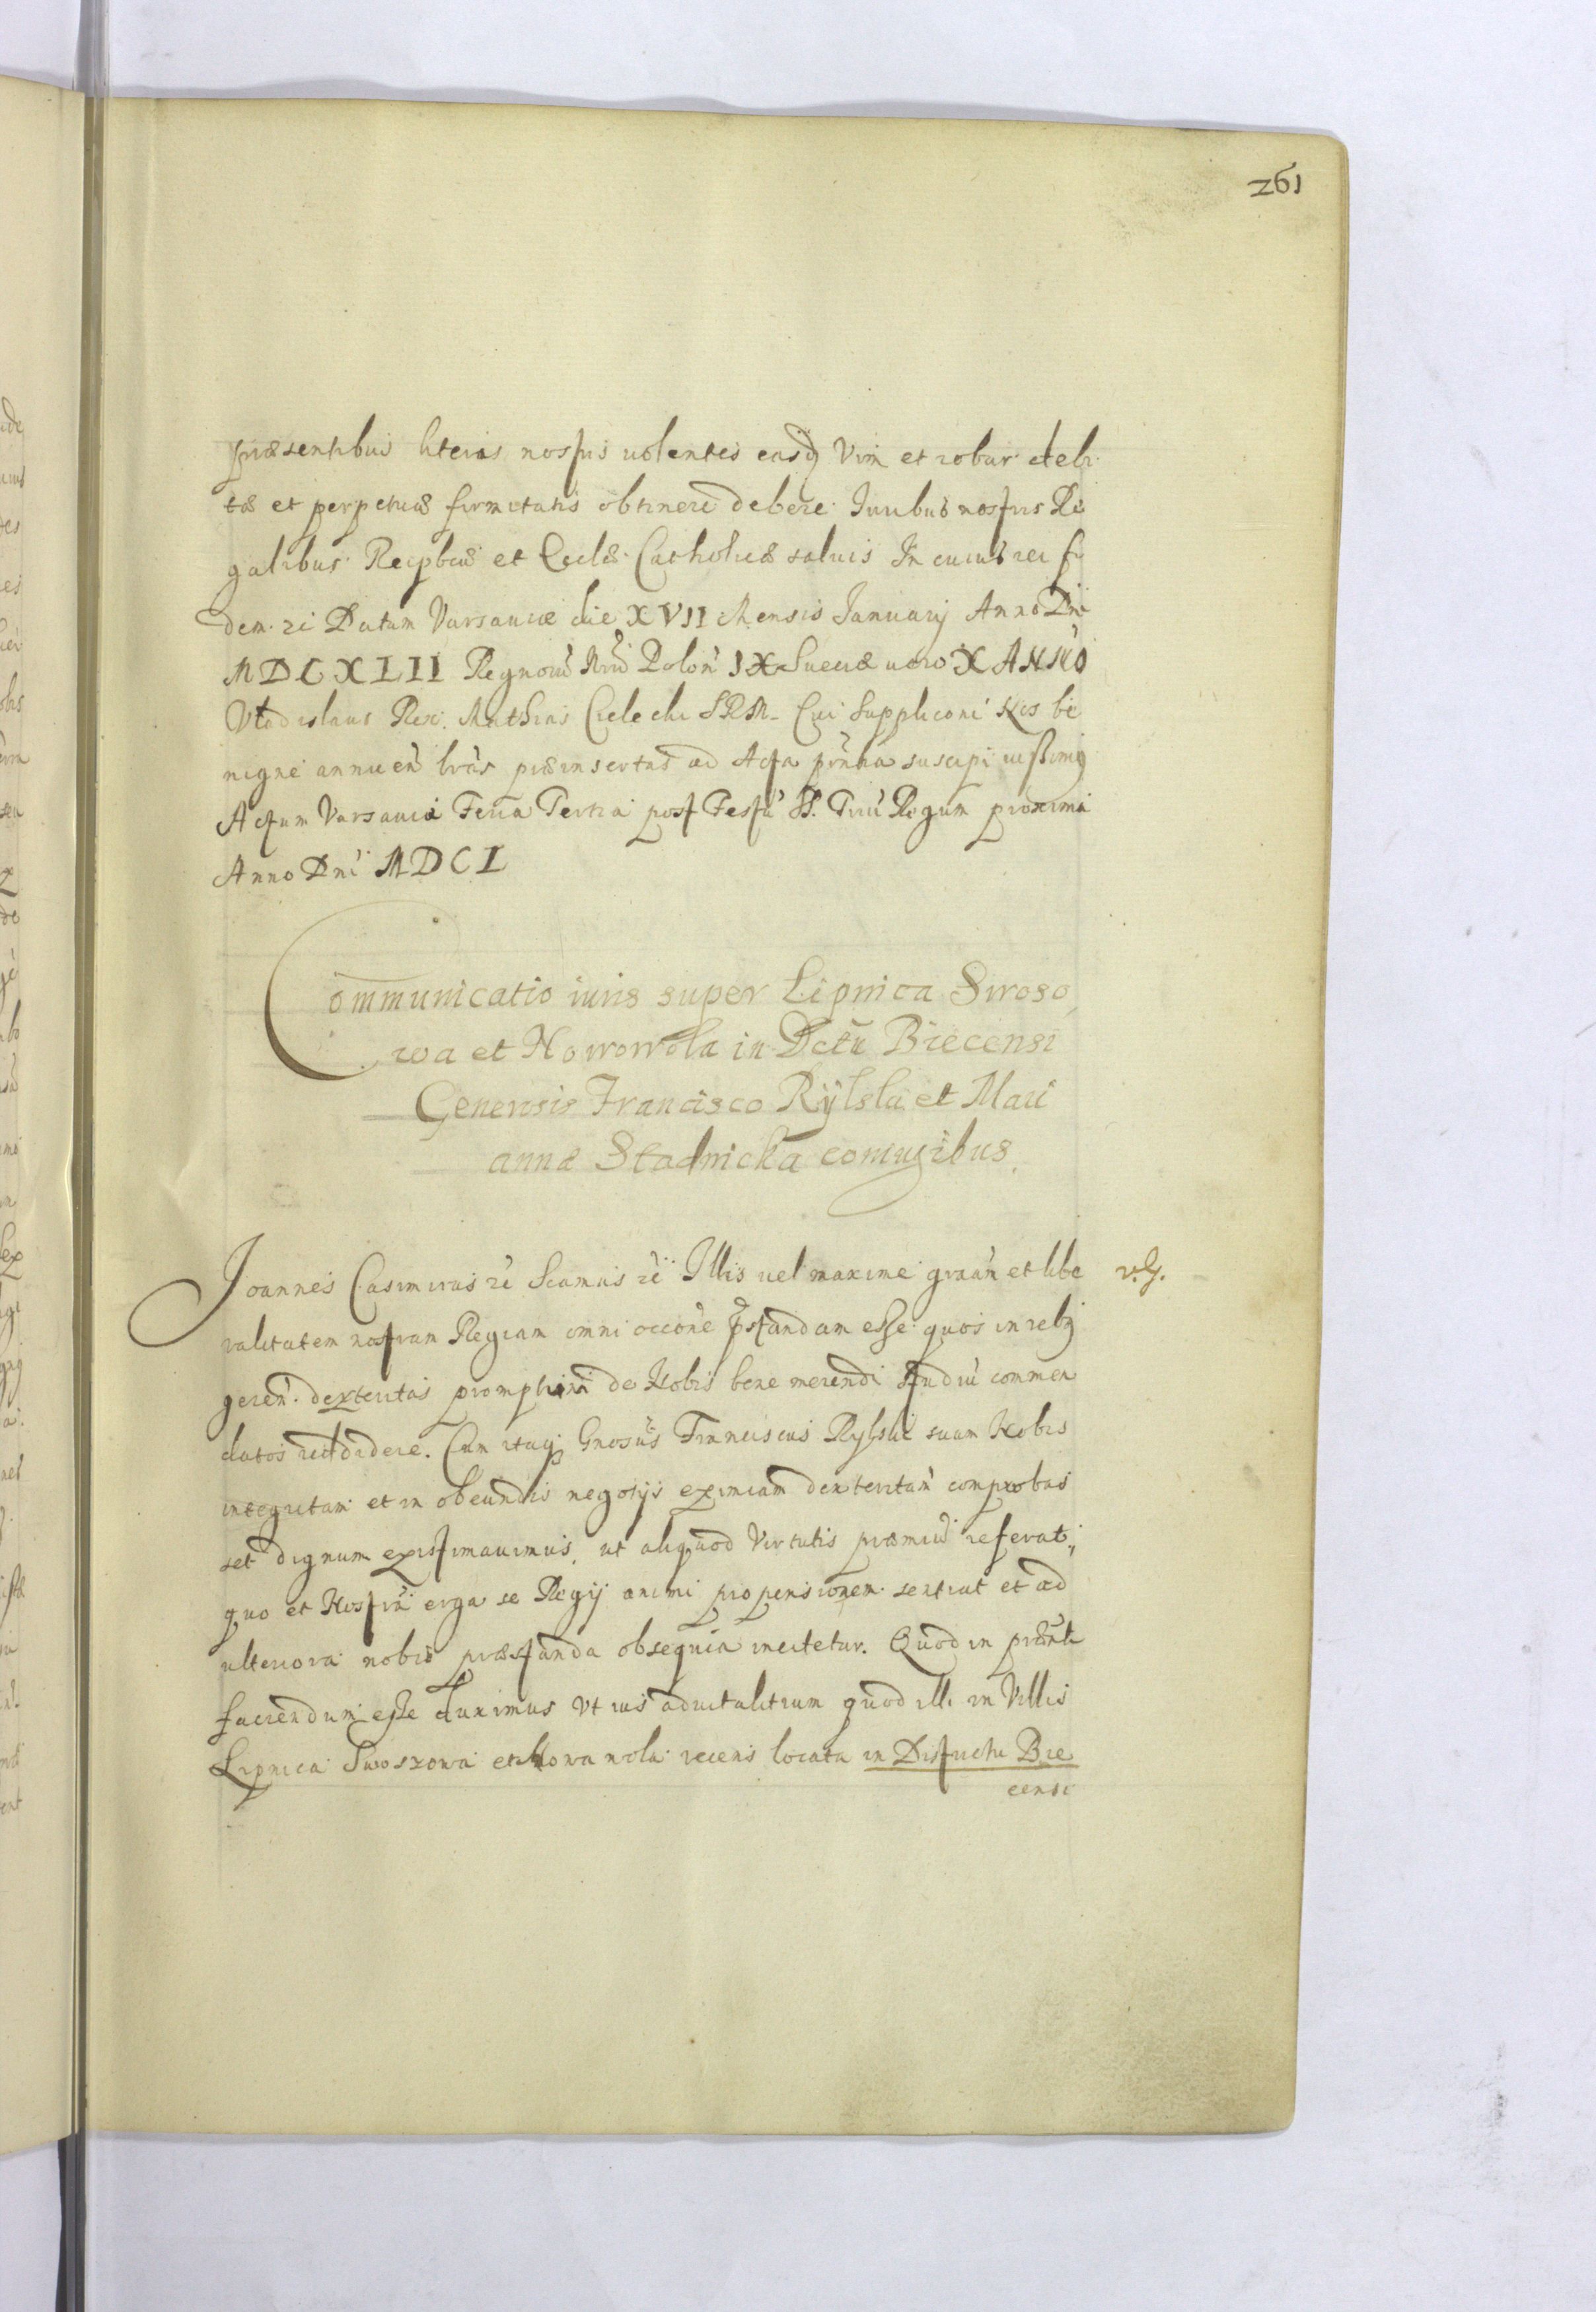 261
præsentibus literis nostris uolentes easq Vim et robur debi
tæ et perpetuæ firmitatis obtinere debere Iuribus nostris Re
galibus Reipbcæ et Ecclæ Catholicæ saluis In cuius rei fi
dem ꝛc Datum Varsauiæ die XVII Mensis Ianuarij Anno Dni
MDCXLII Regnorũ Nrũ Polon̄ IX Sueciæ uero X ANNO
Vladislaus Rex. Mathias Cielecki SRM. Cui Suppliconi Nos be
nigne annuen̄ lrãs præinsertas ad Acta pn̄tia suscipi iussimq
Actum Varsauiæ Feria Tertia post Festũ SS. Triũ Regum proxima
Anno Dni MDCL
Communicatio iuris super Lipnica Swoso
wa et Nowowola in Dctũ Biecensi
Generosis Francisco Rÿlski et Mari
annæ Stadnicka coniugibus.
Joannes Casimirus ꝛc Scamus ꝛc Illis uel maxime grãan et libe
v.G.
ralitatem nostram Regiam omni occõne p̃standam esse quos in rebq
geren̄. dexteritas de Nobis bene merendi studiũ commen
datos reddidere. Cum itaq Gnosus Franciscus Rylski suam Nobis
integritam et in obeundis negotijs eximiam dexteritañ comprobas
set dignum existimauimus, ut aliquod Virtutis præmiũ referat,
quo et Nostrã erga se Regij animi propensionem sentiat et ad
ulteriora nobis præstanda obsequia incitetur. Quod in præñti
faciendum esse duximus Vt ius aduitalitium quod illi in Villis
Lipnica Swoszowa et Nowa wola recens locata in Districtu Bie
censi